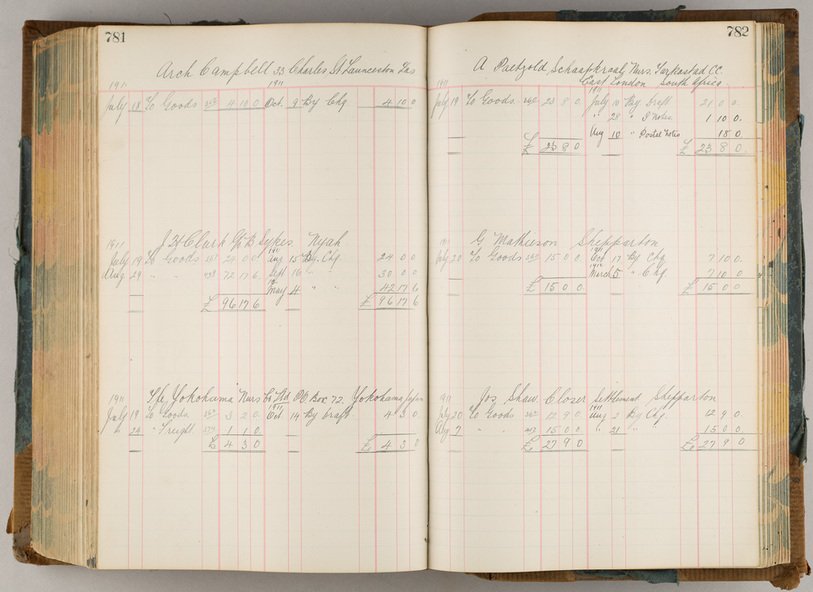 781
Arch Campbell 33 Charles St Launceston Tas
1911 1911
July 18 To Goods 4 10 0 Oct 9 By Chq 4 10 0
1911 J H Clark Sykes Nyah
July 19 To Goods 24 0 0 Aug 15 By Chq 24 0 0
Aug 29 " " 72 17 6 Sept 16 " 30 0 0
May 4 " " 42 17 6
£ 96 17 6 £ 96 17 6
1911 The Yokohama Nurs Co Ltd P.O. Box 72 Yokohama Japan
1911
July 19 To Goods 3 2 0 Oct 14 By Draft 4 3 0
" 26 " Freight 1 1 0
£ 4 3 0 £ 4 3 0
782
A Paetzold, Schaapkraal, Nurs. Tarkastad C.C.
East London South Africa
1911 1911
July 19 To Goods 23 8 0 July By Draft 21 0 0
" 28 " P Notes 1 10 0
Aug 10 " Postal Notes 18 0
£ 23 8 0 £ 23 8 0
1911 G Mathieson Shepparton
1911
July 20 To Goods 15 0 0 Oct 17 By Chq 7 10 0
1912
March 5 " Chq 7 10 0
£ 15 0 0 £ 15 0 0
1911 Jos Shaw Closer Settlement Shepparton
1911
July 20 To Goods 12 9 0 Aug 2 By Chq 12 9 0
Aug 7 " " 15 0 0 " 28 " " 15 0 0
£ 27 9 0 £ 27 9 0